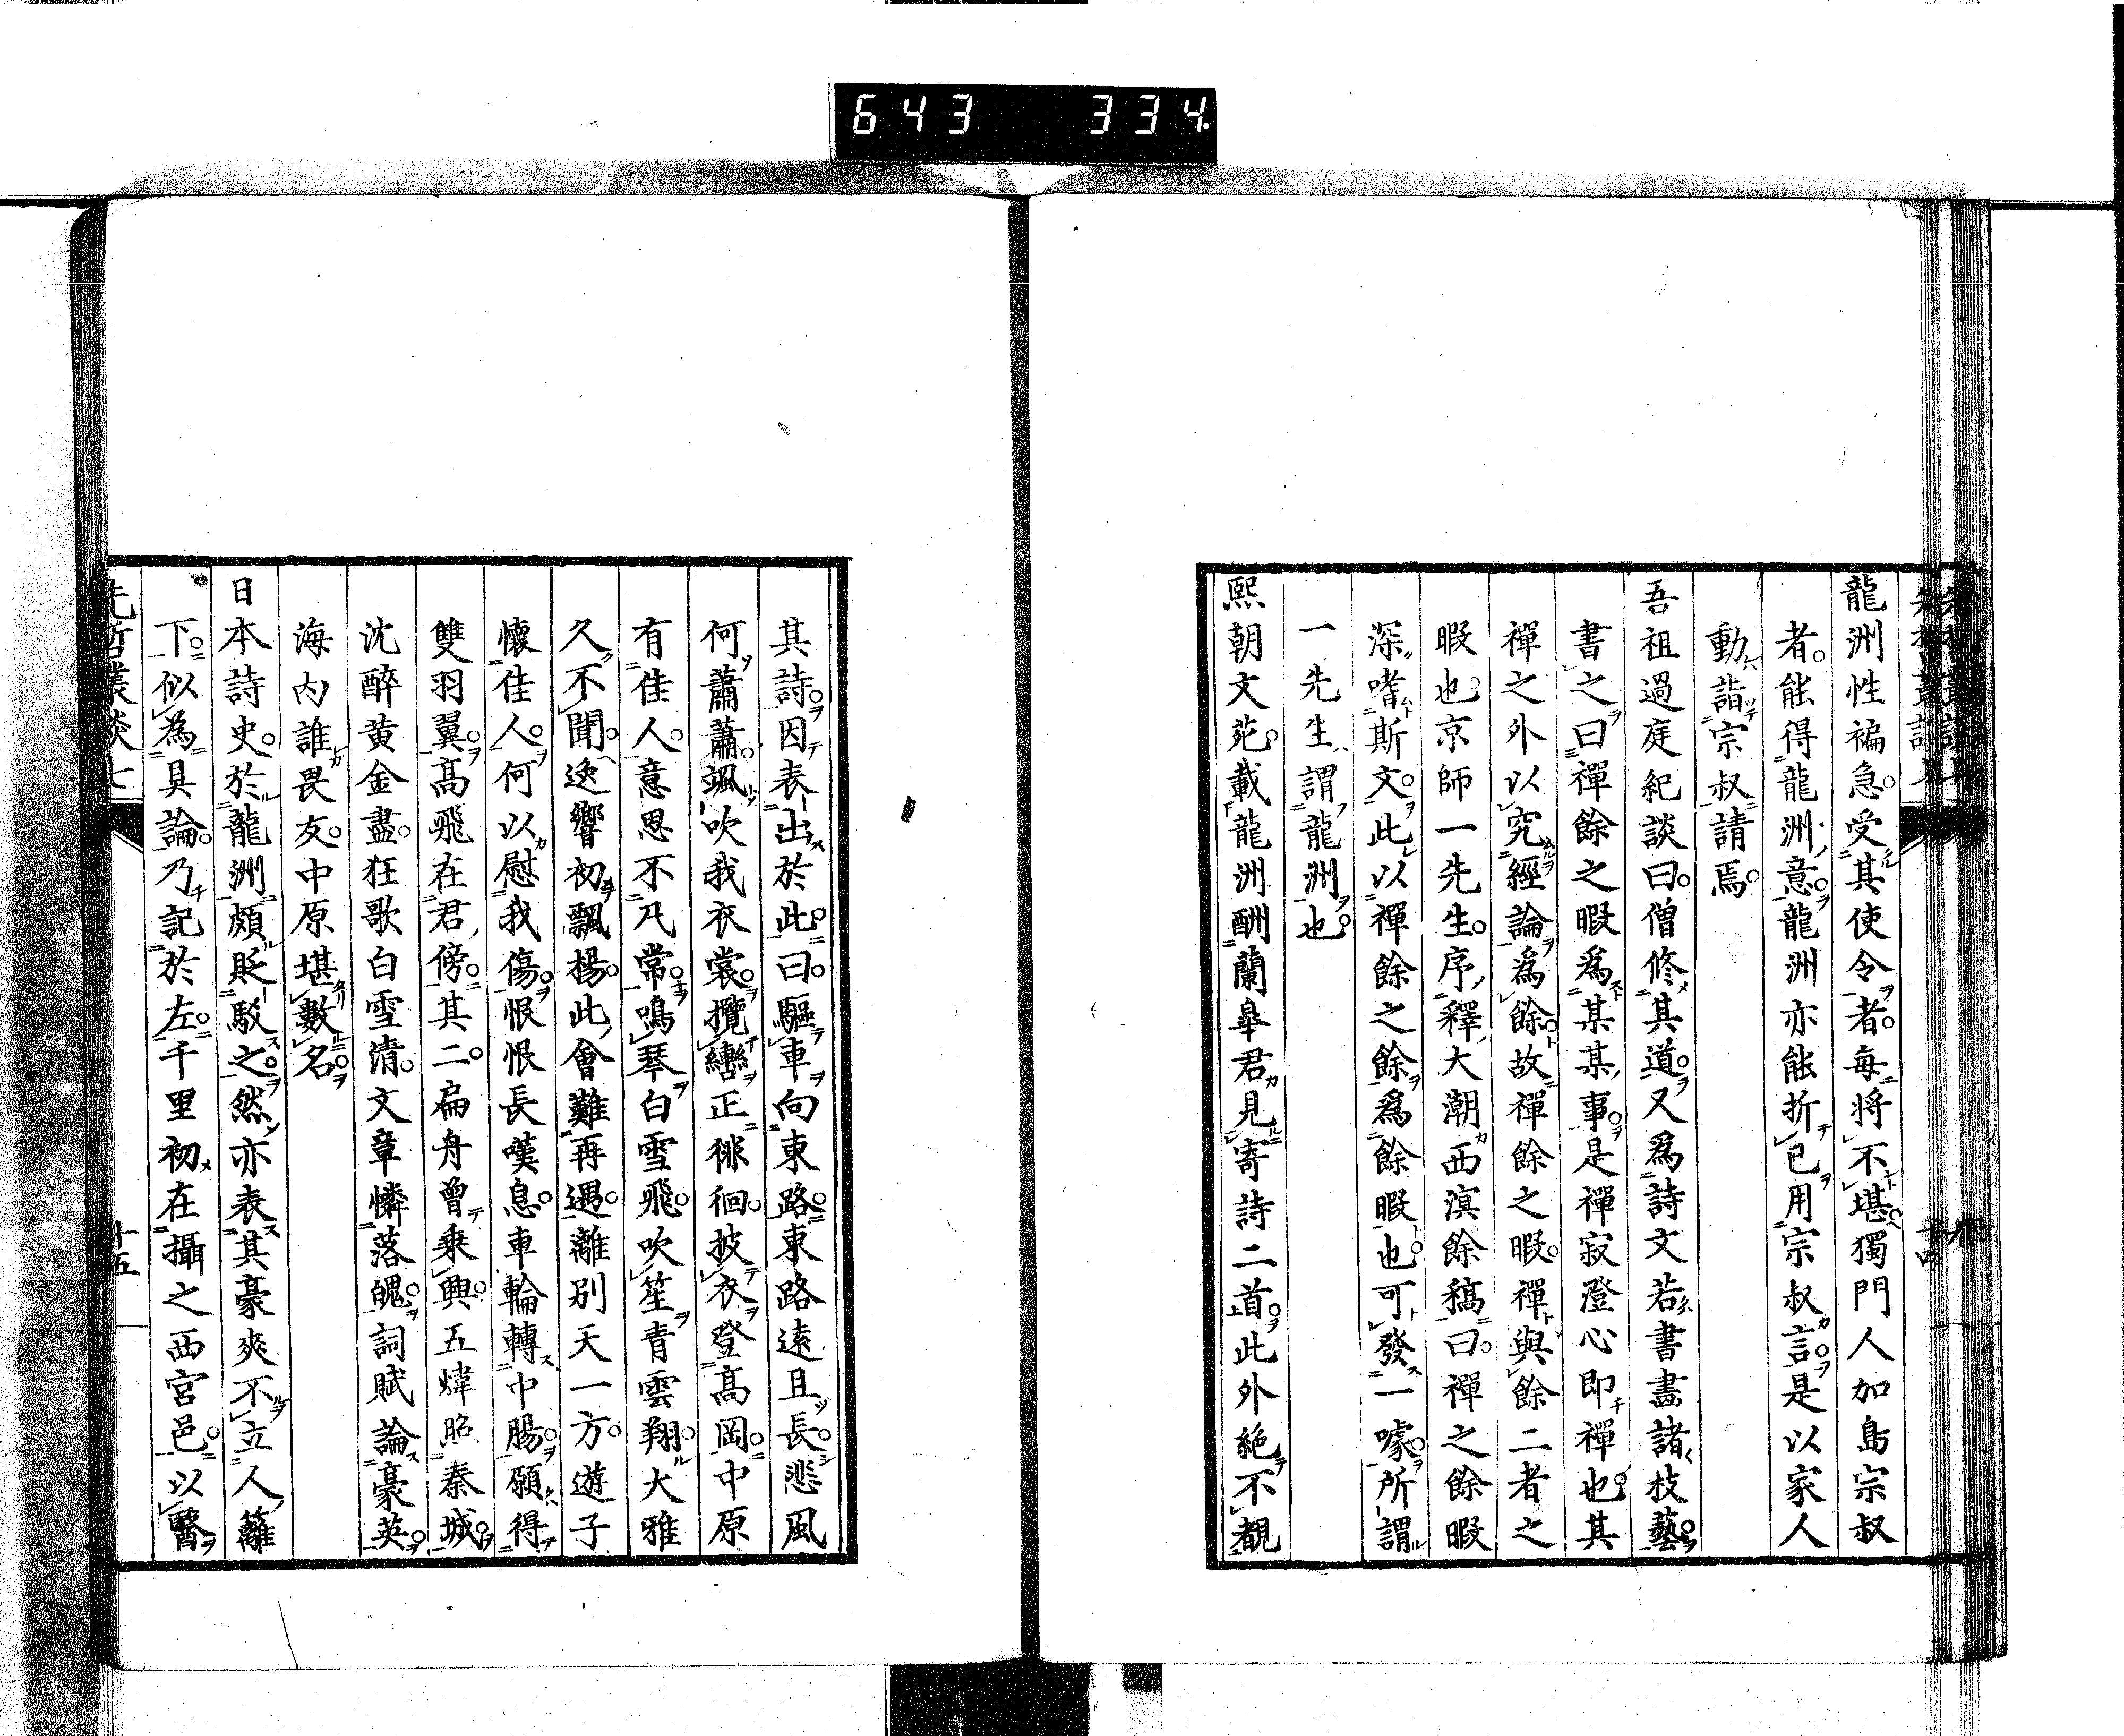 643 334
龍洲性褊急。受其使令者。每將不堪。獨門人加島宗叔
者。能得龍洲意。龍洲亦能折已用宗叔言。是以家人
動詣宗叔請焉。
吾祖過庭紀談曰。僧修其道。又爲詩文若書畫諸技藝。
書之曰禪餘之暇爲某某事。是禪寂澄心即禪也。其
禪之外以究經論爲餘。故禪餘之暇。禪與餘二者之
暇也。京師一先生。序釋大潮西溟餘稿曰。禪之餘暇
深嗜斯文。此以禪餘之餘爲餘暇也。可發一噱。所謂
一先生謂龍洲也。
熙朝文苑。載龍洲酬蘭皐君見寄詩二首。此外絶不覩
其詩。因表出於此。曰。驅車向東路。東路遠且長。悲風
何蕭蕭。颯吹我衣裳。攬轡正徘徊。披衣登高岡。中原
有佳人。意思不凡常。鳴琴白雪飛。吹笙青雲翔。大雅
久不聞。逸響初飄揚。此會難再遇。離別天一方。遊子
懷佳人。何以慰我傷。恨恨長嘆息。車輪轉中腸。願得
雙羽翼。高飛在君傍。其二。扁舟曾乘興。五煒照秦城。
沈醉黄金盡。狂歌白雪清。文章憐落魄。詞賦論豪英。
海内誰畏友。中原堪數名。
日本詩史。於龍洲頗貶駁之。然亦表其豪爽不立人籬
下。似為具論。乃記於左。千里初在攝之西宮邑。以醫
先哲叢談七
十五